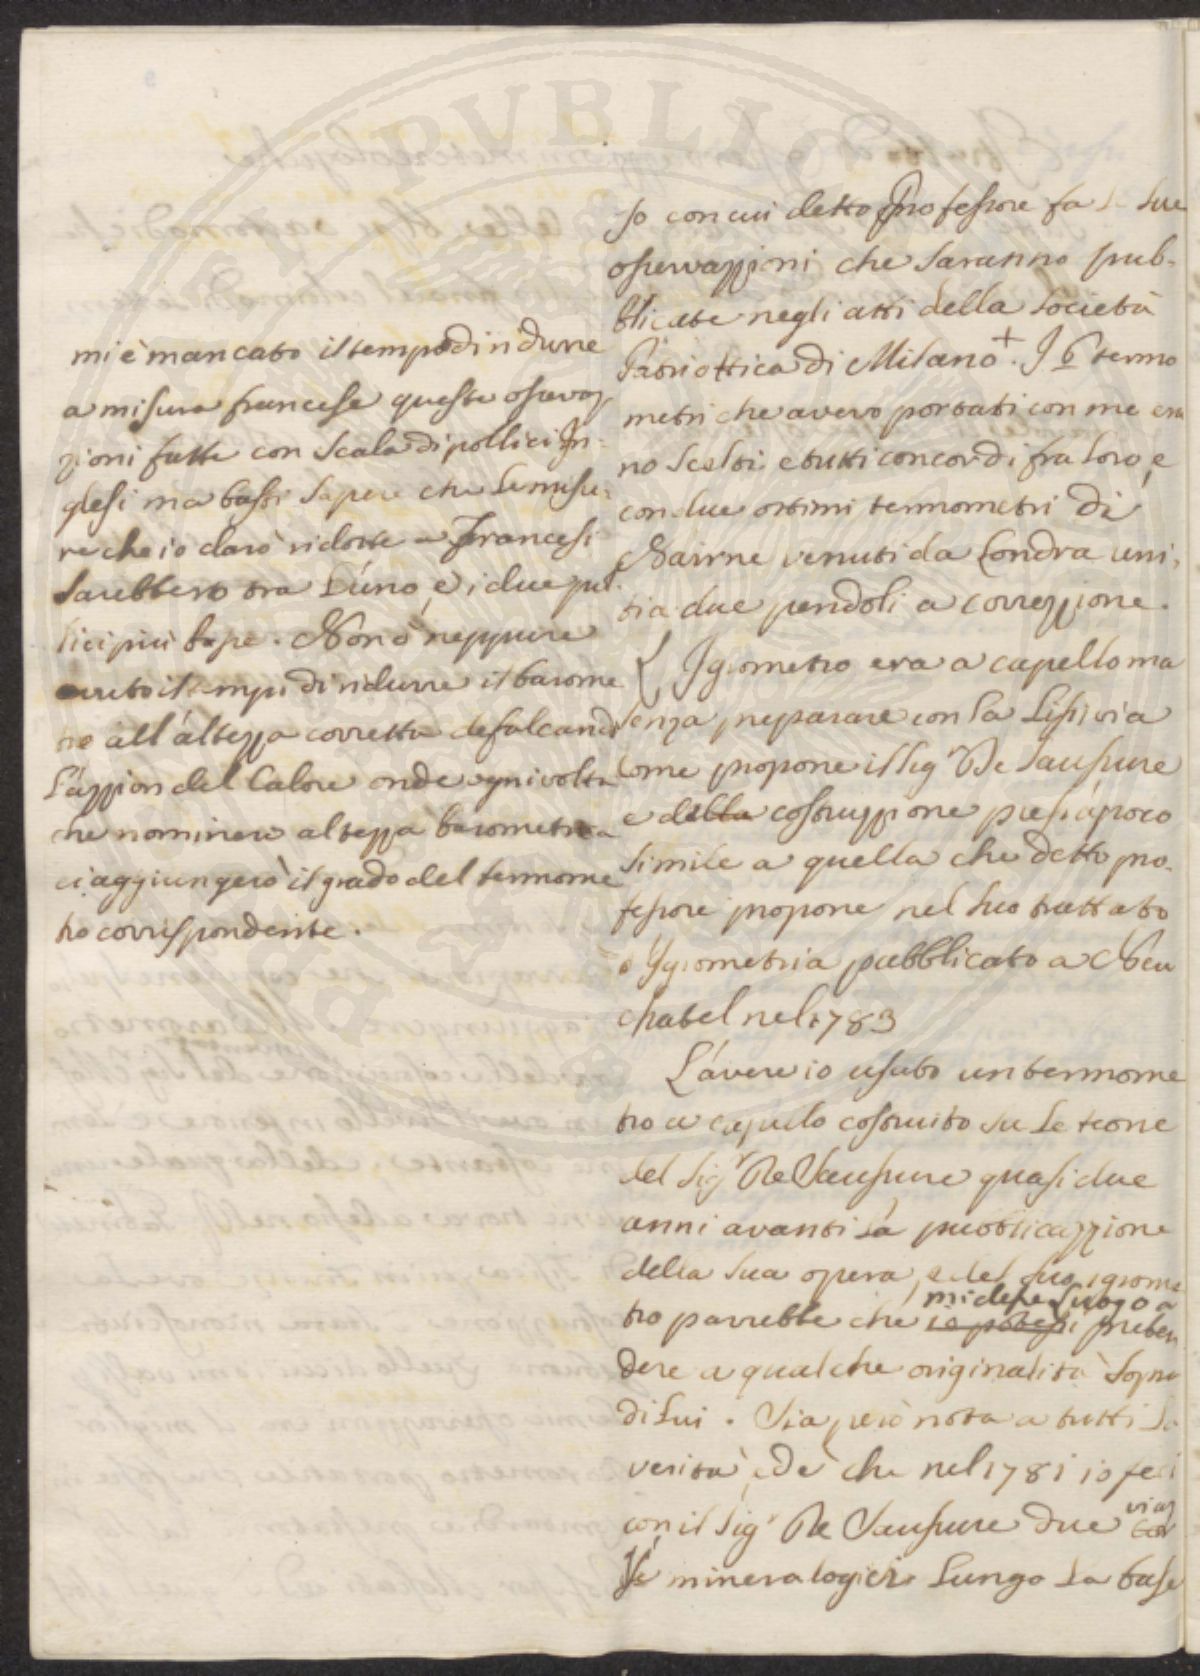 mi è mancato il tempo di ridurre
a misura francese queste osservaz
zioni fatte con scala di pollici In=
glesi ma basti sapere che le misu=
re che io darò ridotte a Francesi
sarebbero tra l'uno, e i due pol
lici più basse. Non ò neppure
avuto il tempo di ridurre il barome
tro all'altezza corretta defalcando
l'azzion del Calore onde ogni volta
che nominerò altezza barometrica
ci aggiungerò il grado del termome
tro corrispondente.

so con cui detto Professore fa le sue
osservazzioni che saranno pub-
blicate negli atti della Società
Patriottica di Milano +. I 6 termo
metri che avevo portati con me era
no scelti e tutti concordi fra loro, e
con due ottimi termometri di
Nairne venuti da Londra uni,
ti a due pendoli a correzzione.
{ Igrometro era a capello ma
senza preparare con la Lissivia
come propone il Sig.r De Saussure
e della costruzzione pressi à poco
simile a quella che detto pro-
fessore propone nel suo trattato
d'Ygrometria pubblicato a Neu
chatel nel 1783
L'avere io usato un termome
tro a capello costruito su le teorie
del Sig.r De Saussure quasi due
anni avanti la pubblicazzione
della sua opera, e del suo igrome
mi desse luogo a
tro parrebbe che io potessi preten
dere a qualche originalità sopra
di lui. Sia però nota a tutti la
verità, ed è che nel 1781 io feci
viag
con il Sig.r De Saussure due
gi mineralogici lungo la base